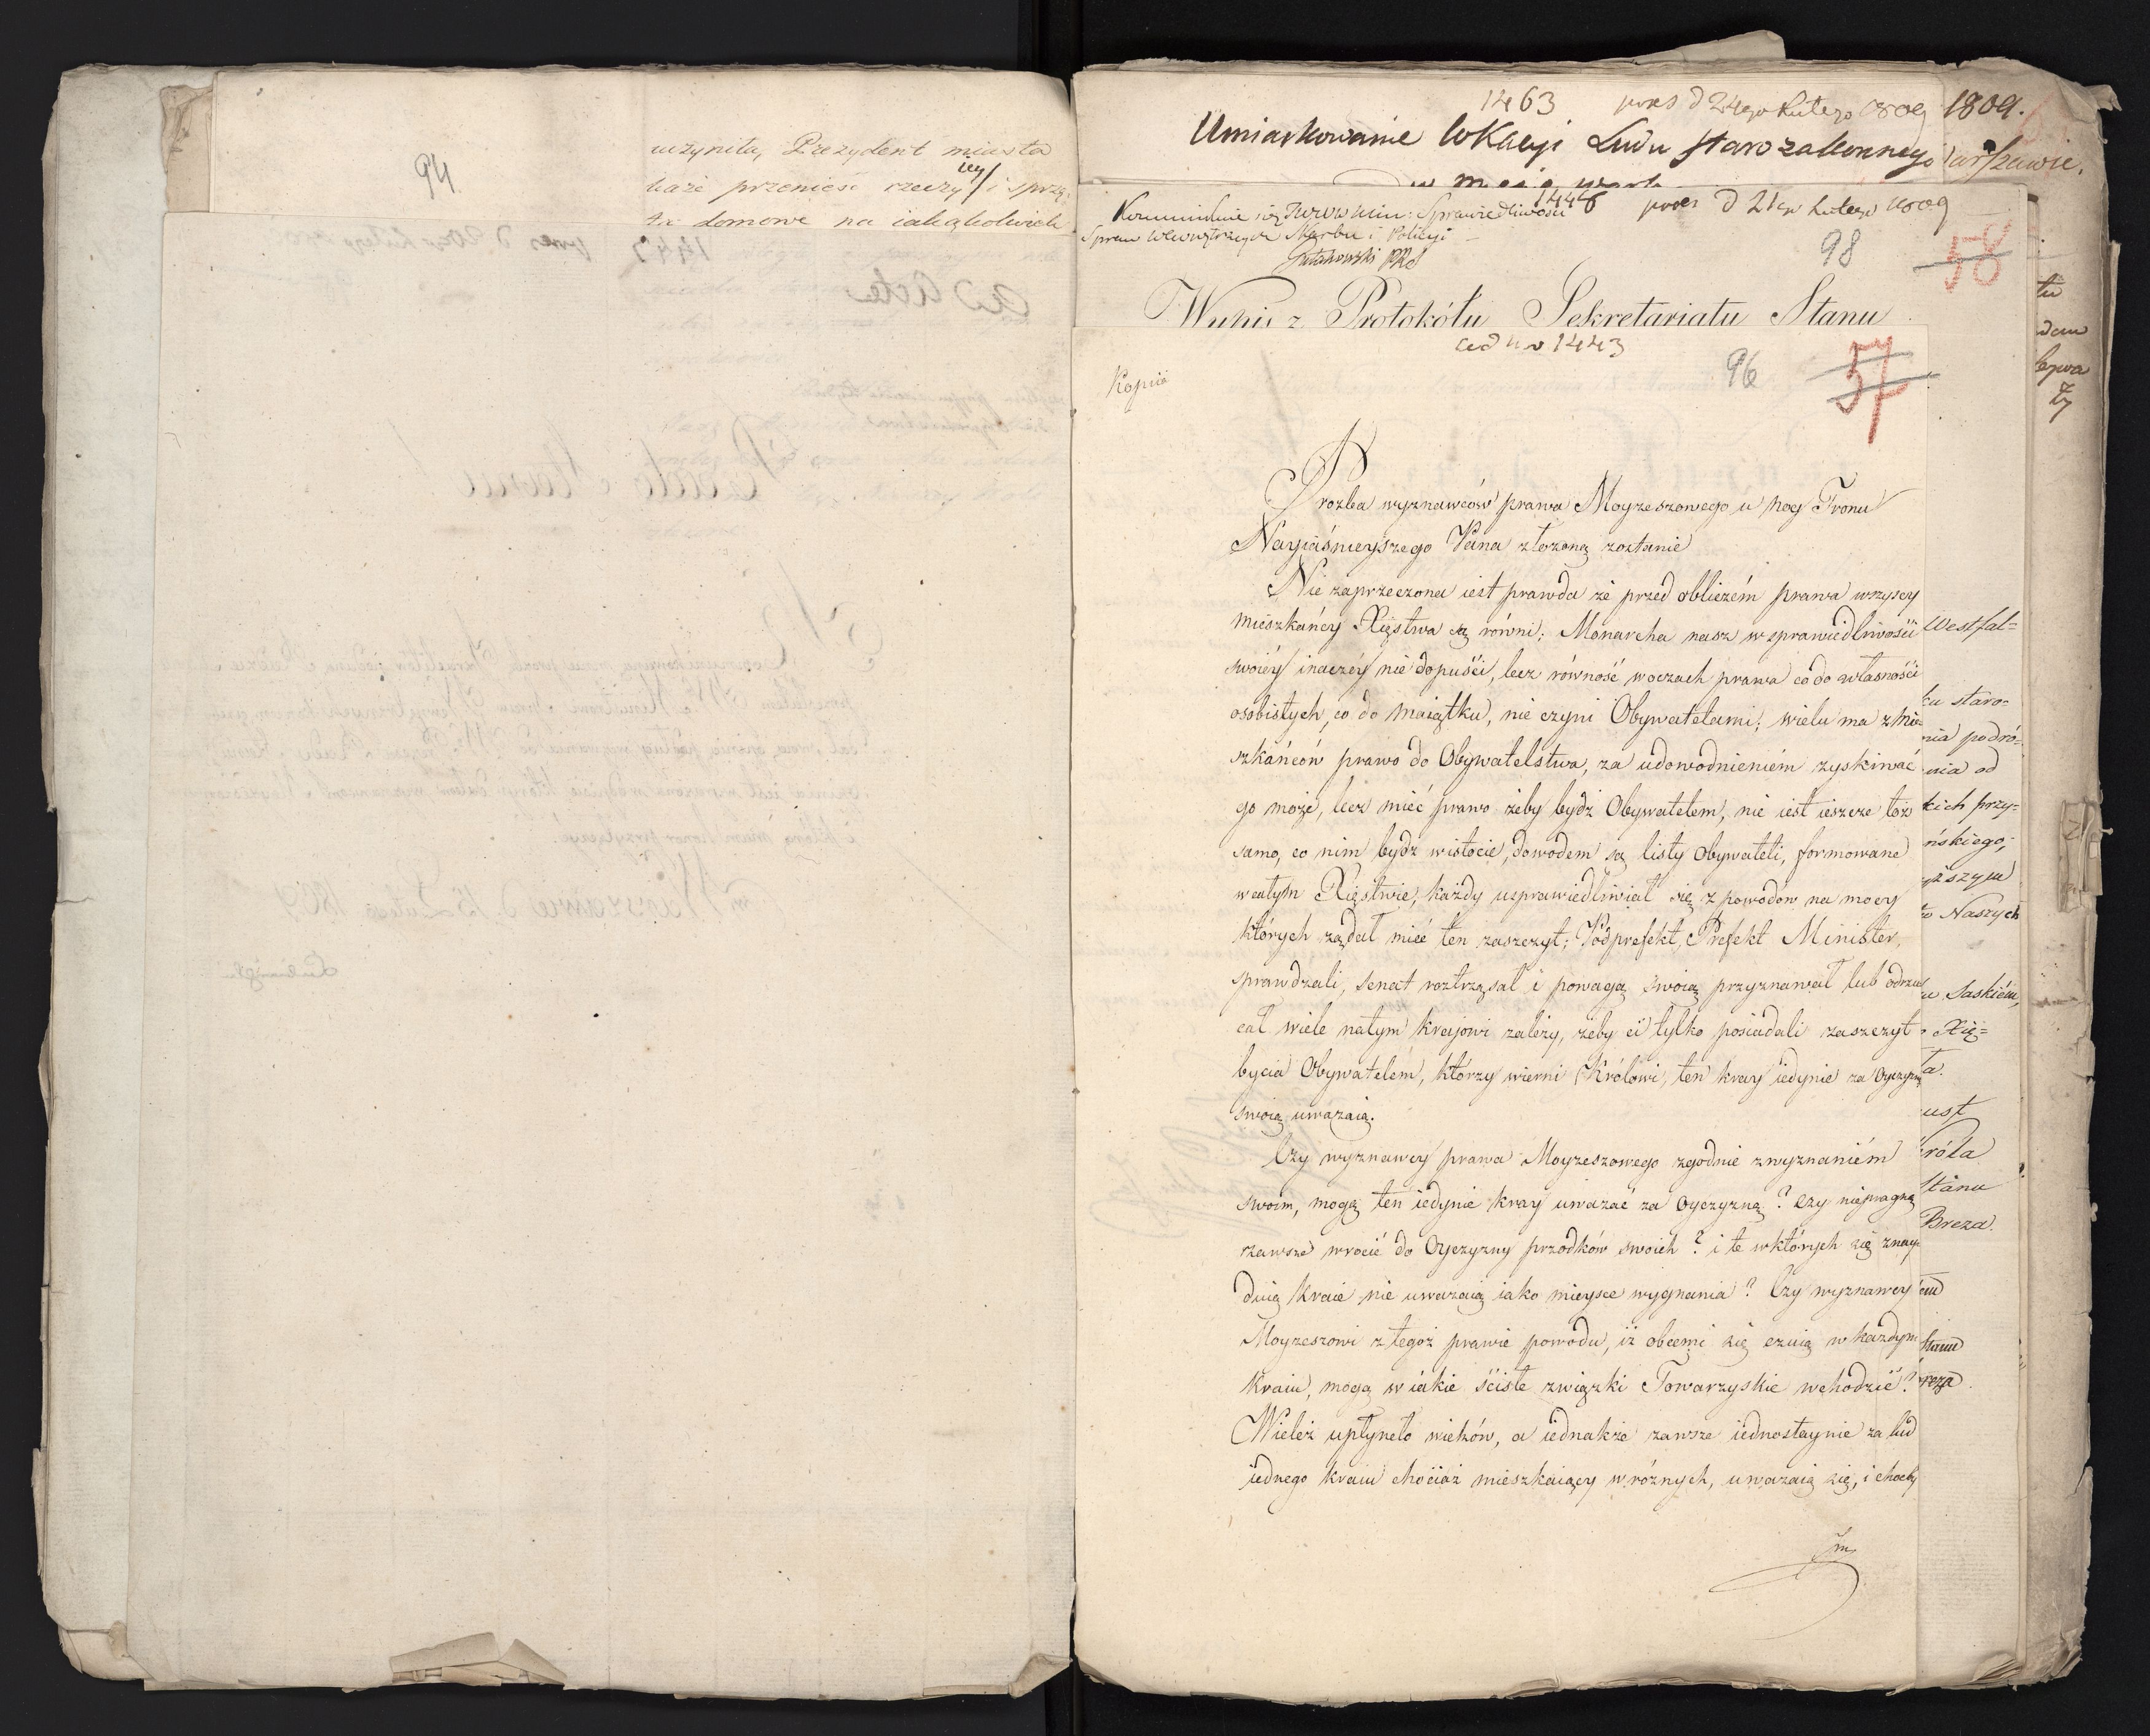 94
uczyniła, Prezydent miasta
każe przenieść rzeczy iey i sprzę
ta domowe na iakąkolwiek
1463 pres d 24go Lutego 1809 1809.
Umiarkowanie lokacyi Ludu starozakonnego
arszawie.
1446 pres d 21go Lutego 1809
Kommunikuie się JWWW Min: Sprawiedliwości
Spraw Wewnętrznych Skarbu i Policyi
Gutakowski PRS
98
58
Wypis z Protokółu Sekretariatu Stanu
ad nro 1443
Kopiia
96
57
Prozba wyznawców prawa Moyzeszowego u nog Tronu
Nayiaśnieyszego Pana złożoną zostanie
Nie zaprzeczona iest prawda że przed obliczém prawa wszyscy
mieszkańcy Xięstwa są równi; Monarcha nasz w sprawiedliwości
swoiéy inaczéy nie dopuści, lecz równość w oczach prawa co do własności
osobistych, co do maiątku, nie czyni Obywatelami; wielu ma z mie-
szkańców prawo do Obywatelstwa, za udowodnieniém zyskiwać
go może, lecz mieć prawo żeby bydź Obywatelem, nie iest ieszcze toż
samo, co nim bydź w istocie, dowodem są listy Obywateli, formowane
w całym Xięstwie, każdy usprawiedliwiał się z powodów na mocy
których żądał mieć ten zaszczyt; Podprefekt, Prefekt Minister,
sprawdzali, Senat roztrząsał i powagą swoią przyznawał lub odrzu
cał wiele na tym krajowi zależy, żeby ci tylko posiadali zaszczyt
bycia Obywatelém, którzy wierni Królowi, ten kray iedynie za Oyczyznę
swoią uważaią.
Czy wyznawcy prawa Moyzeszowego zgodnie z wyznaniém
swoim, mogą ten iedynie kray uważać za Oyczyznę? czy nie pragną
zawsze wrócić do Oyczyzny przodków swoich? i te w których się znay-
duią kraie nie uważaią iako mieysce wygnania? Czy wyznawcy
Moyzeszowi z tegoż prawie powodu, iż obcemi się czuią w każdym
kraiu, mogą w iakie ściste związki Towarzyskie wchodzić?
Wieleż upłyneło wieków, a iednakże zawsze iednostaynie za lud
iednego kraiu chociaż mieszkaiący w różnych, uważaią się, i choćby
Westfal=
ku staro=
nia podró=
nia od
kich przy=
ńskiego,
yższym
Naszych
Saskiém,
Xię=
ta.
ust
róla
Stanu
Breza.
Stanu
reza
tu
dem